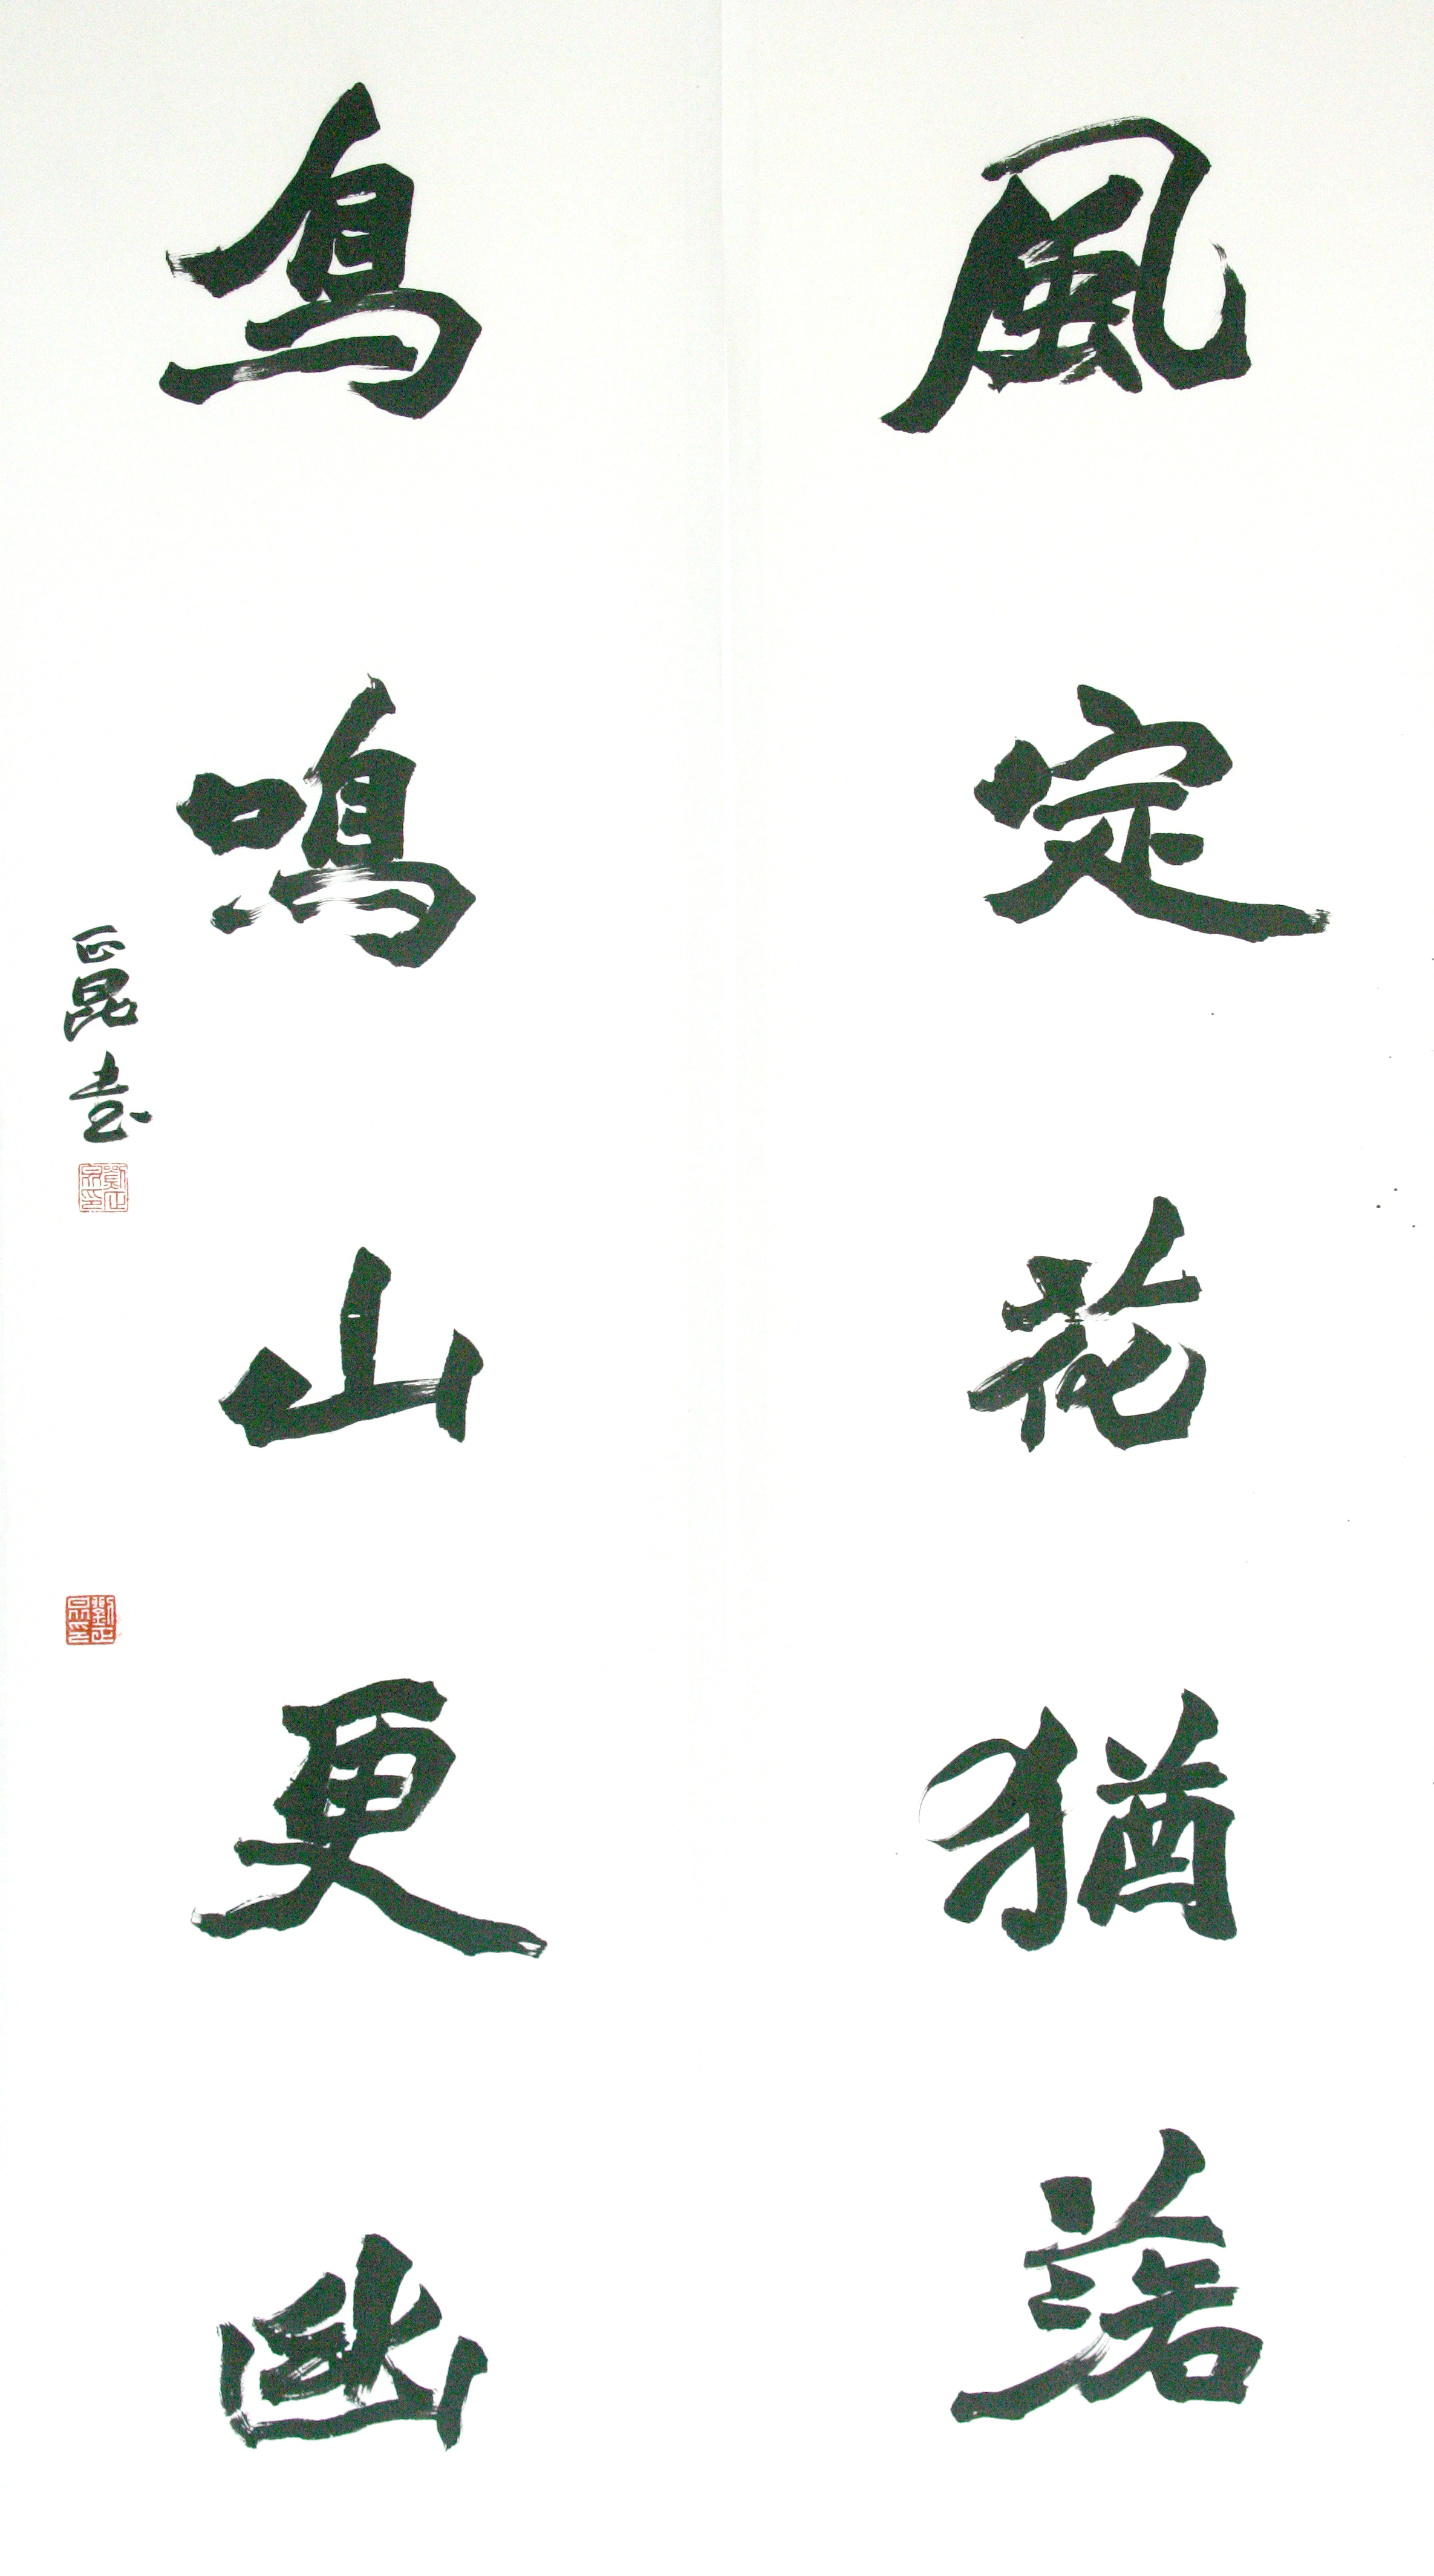 風定花猶落
鳥鳴山更幽
正昆書